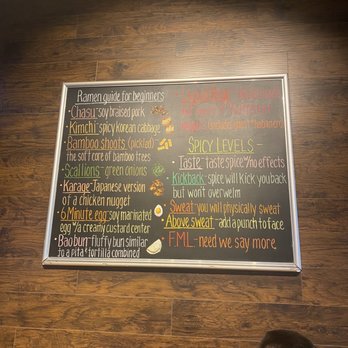 Ramen guide for beginners
Chasu-soy braised pork
Kimchi-spicy korean cabbage
Bamboo shoots (pickled)
the soft core of bamboo trees
Scallions-green onions
Karage-Japanese version
of a chicken nugget
6 Minute egg-soy marinated
egg w/a creamy custard center
Bao bun-fluffy bun similar
to a pita & tortilla combined
SPICY LEVELS-
Taste-taste spice w/no effects
Kickback-spice will kick you back
but wont overwelm
Sweat-you will physically sweat
Above sweat-add a punch to face
FML-need we say more